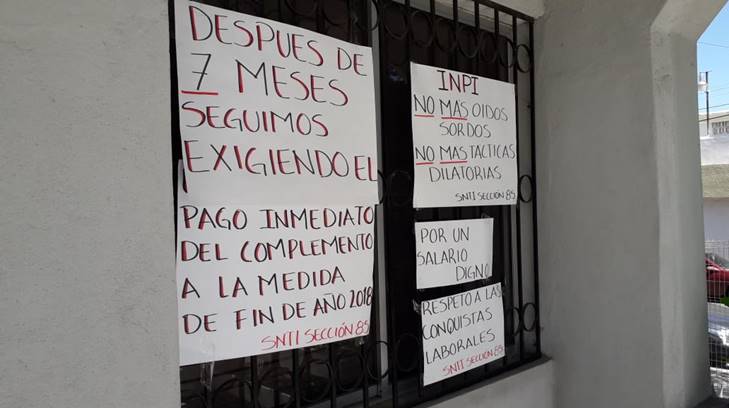 DESPUES DE
7 MESES
SEGUIMOS
EXIGIENDO EL
PAGO INMEDIATO
DEL COMPLEMENTO
A LA MEDIDA
DE FIN DE AÑO 2018
SNTI SECCIÓN 85
INPI
NO MAS OIDOS
SORDOS
NO MAS TACTICAS
DILATORIAS
SNTI SECCIÓN 85
POR UN
SALARIO
DIGNO
RESPETO A LAS
CONQUISTAS
LABORALES
SNTI SECCIÓN 85